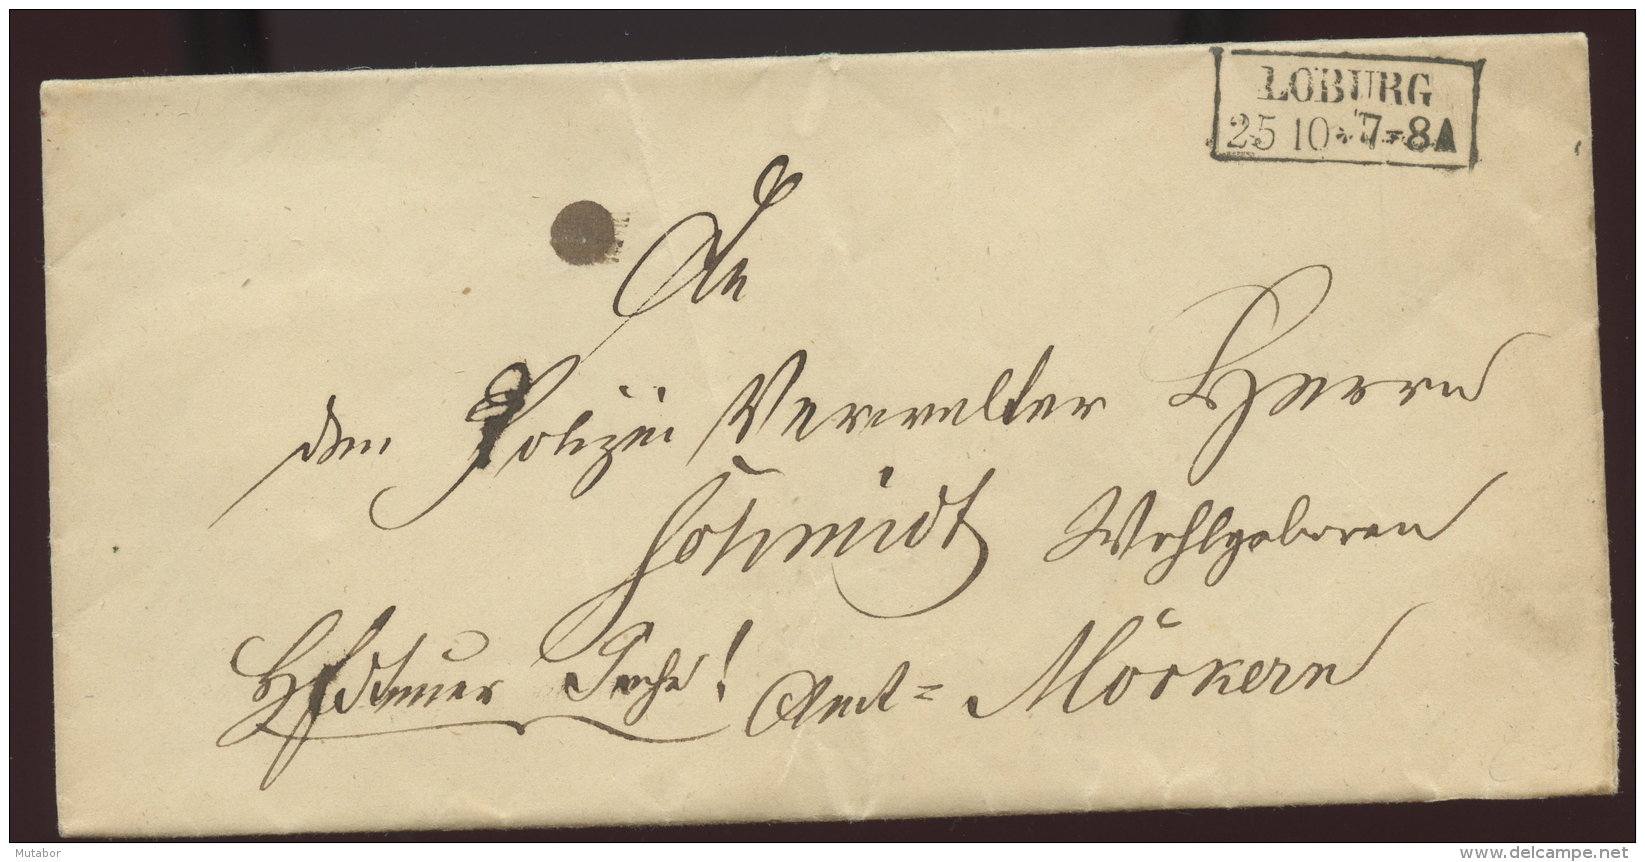 LOBURG
25 10 * 7-8 A
An
den Polizei Verwalter Herrn
Schmidt Wohlgeboren
Sache! Amt = Möckern
Mutabor
delcampe.net